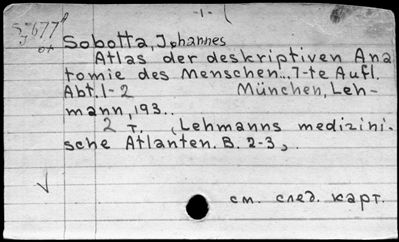 -1-
Sobotta, Johannes
Atlas der deskriptiven Ana
tomie des Menschen... 7-te Aufl.
Abt. 1-2 München, Leh-
mann, 193..
2 т. (Lehmanns medizini-
sche Atlanten. B. 2-3,.
см. след. карт.